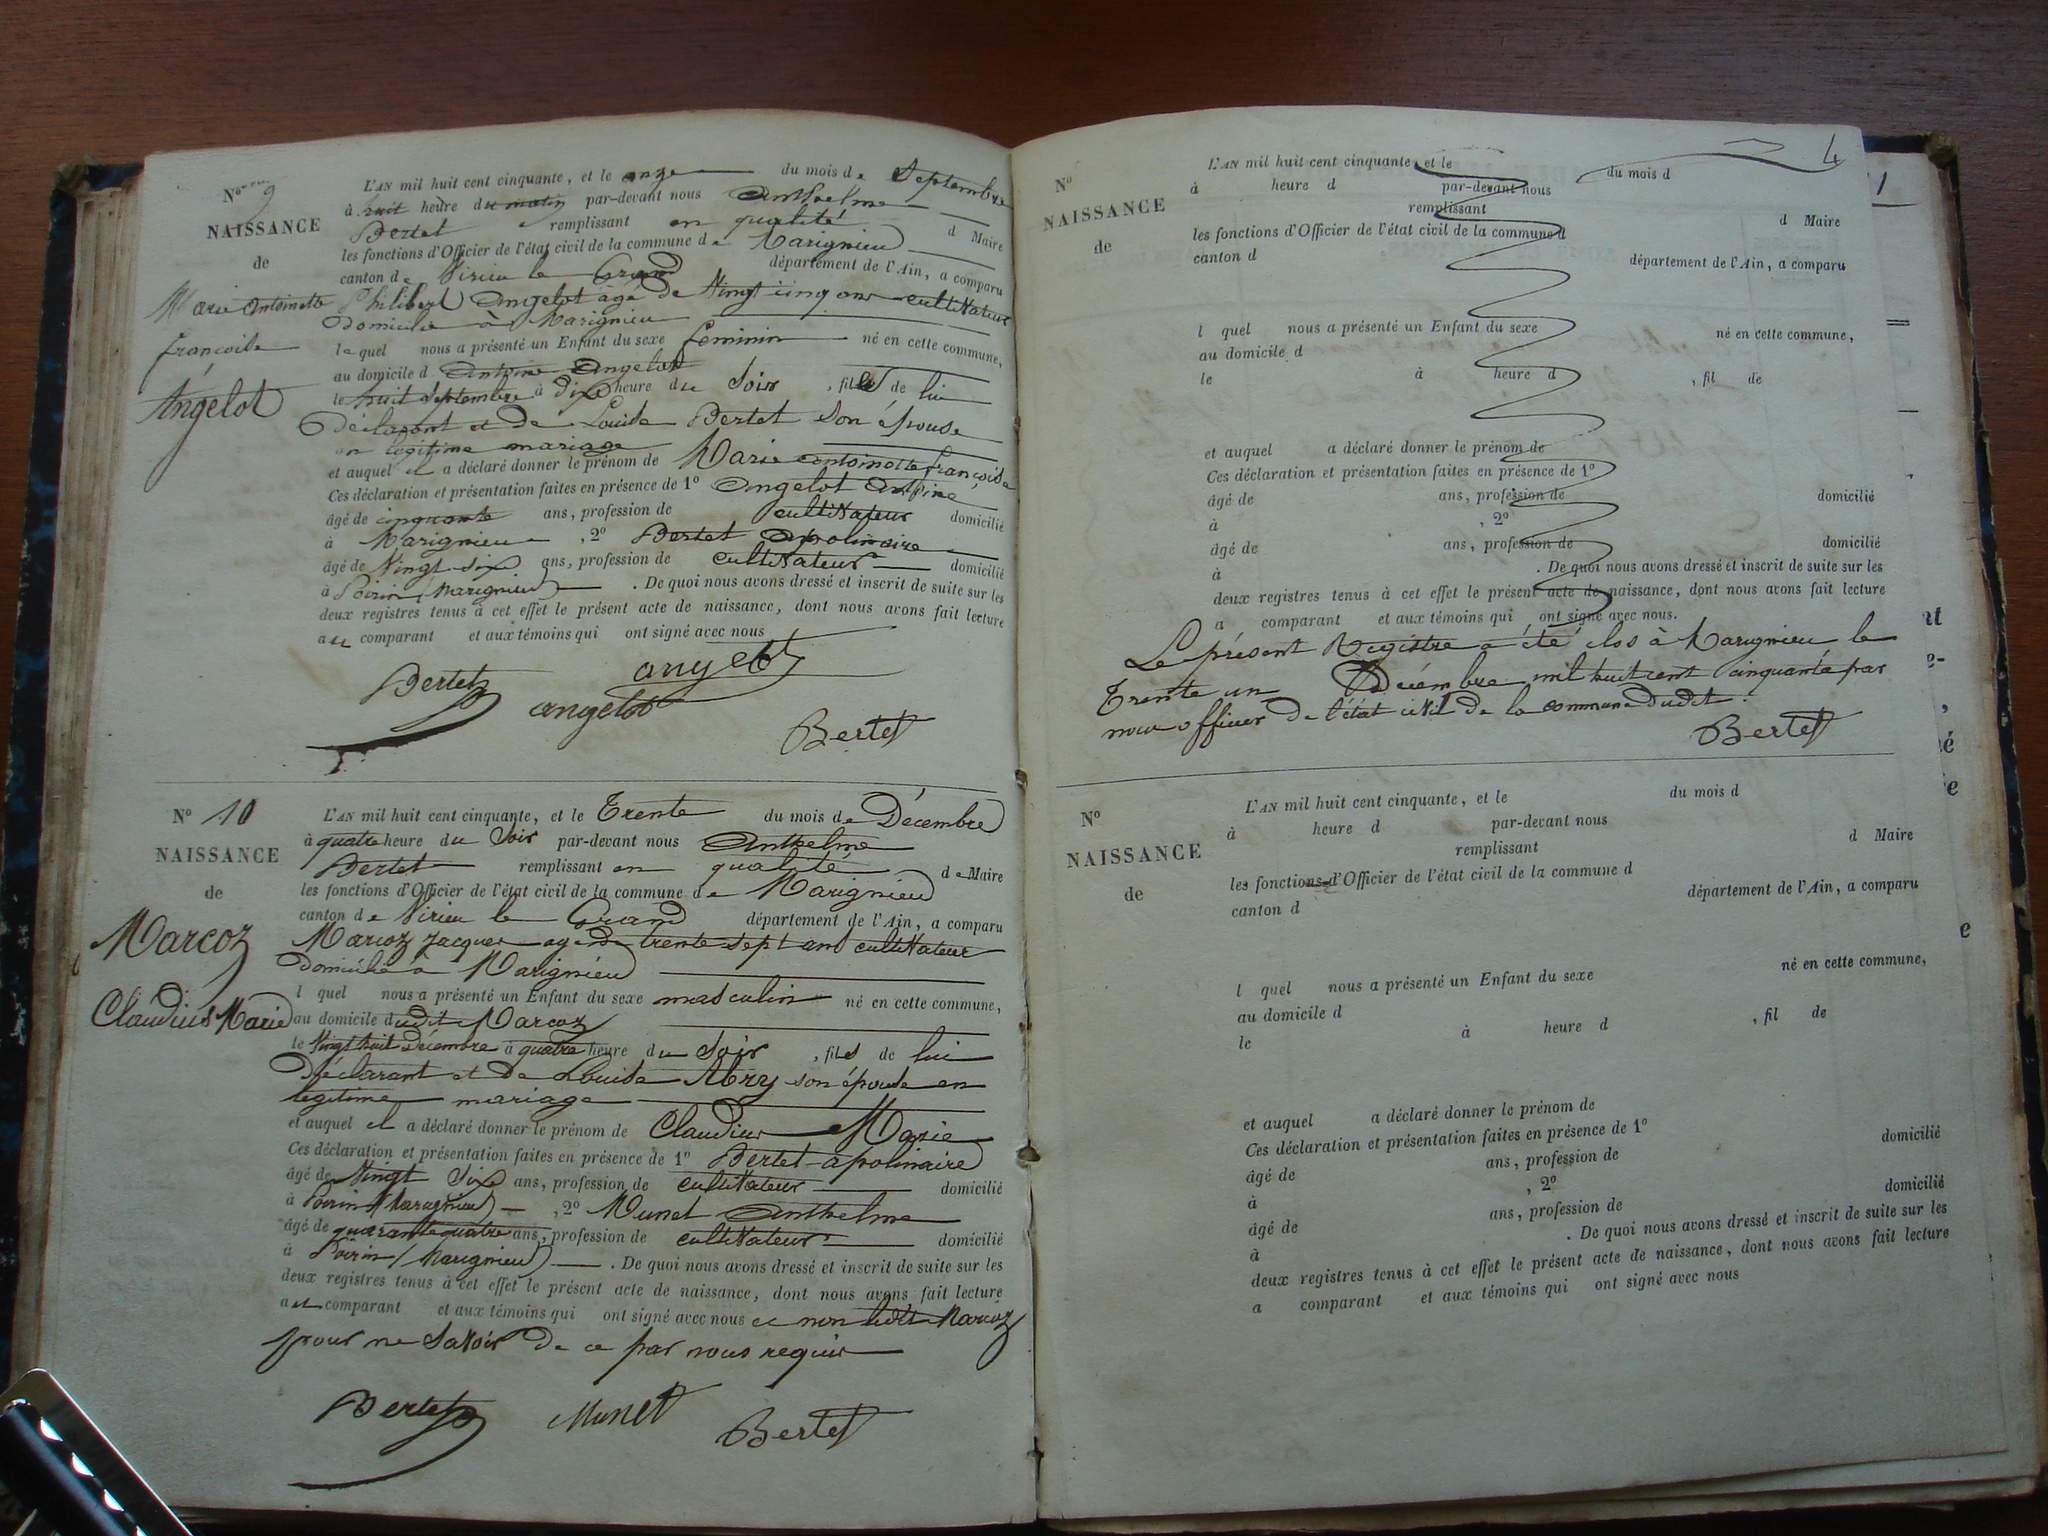 No 9
NAISSANCE
de
Marie Antoinette
françoise
Angelot
L'AN mil huit cent cinquante, et le onze du mois de Septembre
à huit heure du matin par-devant nous Anthelme
Bertet remplissant en qualité d Maire
les fonctions d'Officier de l'état civil de la commune de Marignieu
canton de Virieu le Grand département de l'Ain, a comparu
Philibert Angelot âgé de Vingt cinq ans cultivateur
Domicilié à Marignieu
lequel nous a présenté un Enfant du sexe feminin né en cette commune,
au domicile d Antoine Angelot
le huit Septembre à dix heure du Soir, fille de lui
Déclarant et de Louise Bertet son épouse
en légitime mariage
et auquel il a déclaré donner le prénom de Marie Antoinette françoise
Ces déclaration et présentation faites en présence de 1º Angelot Antoine
âgé de cinquante ans, profession de cultivateur domicilié
à Marignieu, 2º Bertet Apolinaire
âgé de Vingt six ans, profession de cultivateur domicilié
à Poirin (Marignieu). De quoi nous avons dressé et inscrit de suite sur les
deux registres tenus à cet effet le présent acte de naissance, dont nous avons fait lecture
au comparant et aux témoins qui ont signé avec nous
Bertet angelot
angelot
Bertet
No 10
NAISSANCE
de
Marcoz
Claudius Marie
L'AN mil huit cent cinquante, et le Trente du mois de Décembre
à quatre heure du Soir par-devant nous Anthelme
Bertet remplissant en qualité de Maire
les fonctions d'Officier de l'état civil de la commune de Marignieu
canton de Virieu le Grand département de l'Ain, a comparu
Marcoz Jacques agé de trente sept ans cultivateur
Domicilié à Marignieu
l quel nous a présenté un Enfant du sexe masculin né en cette commune,
au domicile dudit Marcoz
le Vingt huit Décembre à quatre heure du Soir, fils de lui
Déclarant et de Louise Abry son épouse en
légitime mariage
et auquel il a déclaré donner le prénom de Claudius Marie
Ces déclaration et présentation faites en présence de 1º Bertet apolinaire
âgé de Vingt Six ans, profession de cultivateur domicilié
à Poirin (Marignieu), 2º Munet Anthelme
âgé de quarante quatre ans, profession de cultivateur domicilié
à Poirin (Marignieu). De quoi nous avons dressé et inscrit de suite sur les
deux registres tenus à cet effet le présent acte de naissance, dont nous avons fait lecture
au comparant et aux témoins qui ont signé avec nous et non ledit Marcoz
pour ne Savoir de ce par nous requis
Bertet Munet Bertet
4
1
No
NAISSANCE
de
L'AN mil huit cent cinquante, et le du mois d
à heure d par-devant nous
remplissant d Maire
les fonctions d'Officier de l'état civil de la commune d
canton d département de l'Ain, a comparu
l quel nous a présenté un Enfant du sexe né en cette commune,
au domicile d
le à heure d , fil de
et auquel a déclaré donner le prénom de
Ces déclaration et présentation faites en présence de 1º
âgé de ans, profession de domicilié
à , 2º
âgé de ans, profession de domicilié
à . De quoi nous avons dressé et inscrit de suite sur les
deux registres tenus à cet effet le présent acte de naissance, dont nous avons fait lecture
a comparant et aux témoins qui ont signé avec nous.
Le présent Registre a été clos à Marignieu le
Trente un Décembre mil huit cent cinquante par
nous officier de l'état civil de la commune dudit.
Bertet
No
NAISSANCE
de
L'AN mil huit cent cinquante, et le du mois d
à heure d par-devant nous
remplissant d Maire
les fonctions d'Officier de l'état civil de la commune d
canton d département de l'Ain, a comparu
l quel nous a présenté un Enfant du sexe né en cette commune,
au domicile d
le à heure d , fil de
et auquel a déclaré donner le prénom de
Ces déclaration et présentation faites en présence de 1º
âgé de ans, profession de domicilié
à , 2º
âgé de ans, profession de domicilié
à . De quoi nous avons dressé et inscrit de suite sur les
deux registres tenus à cet effet le présent acte de naissance, dont nous avons fait lecture
a comparant et aux témoins qui ont signé avec nous